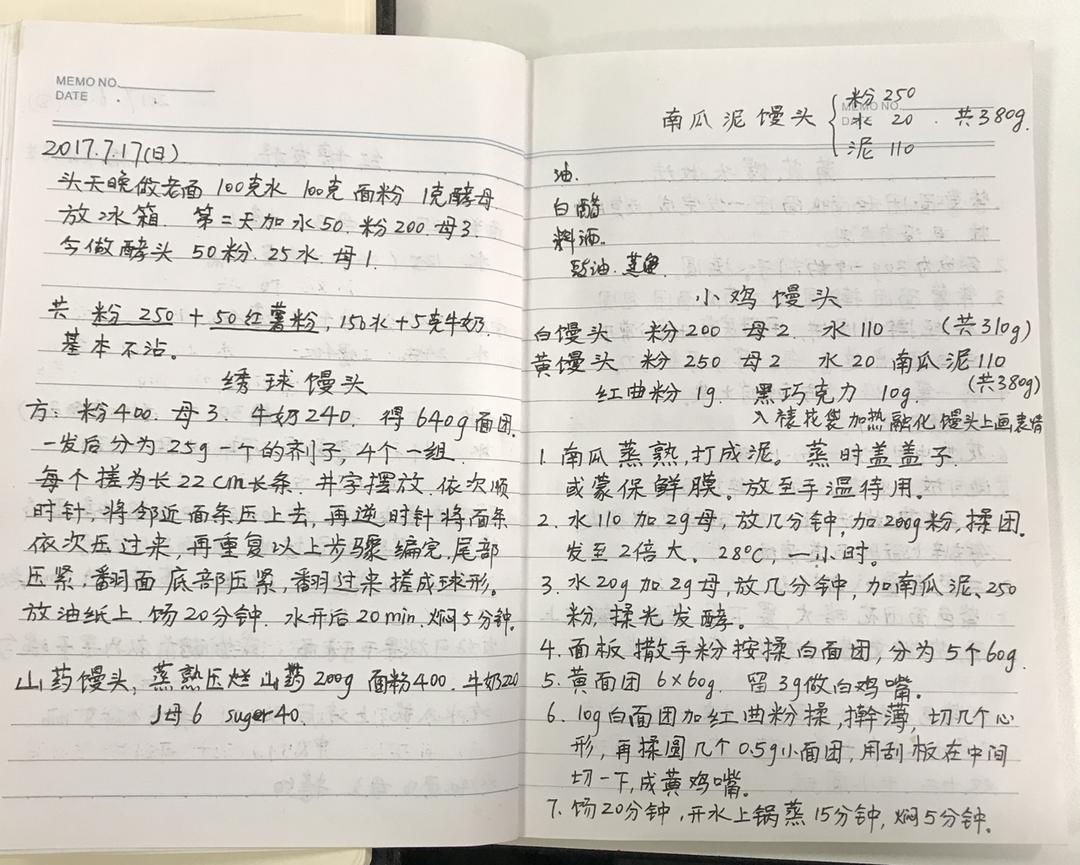 MEMO NO.
DATE
2017.7.17(日)
头天晚做老面 100克水 100克 面粉 1克酵母
放冰箱. 第二天加水50. 粉200. 母3.
今做酵头 50粉. 25水. 母1.
共 粉 250 + 50红薯粉, 150水+5克牛奶.
基本不沾。
绣球馒头
方: 粉400. 母3. 牛奶240. 得640g面团.
一发后分为25g一个的剂子, 4个一组.
每个搓为长22cm长条. 井字摆放. 依次顺
时针, 将邻近面条压上去, 再逆时针将面条
依次压过来, 再重复以上步骤编完, 尾部
压紧, 翻面 底部压紧, 翻过来搓成球形。
放油纸上. 饧20分钟. 水开后20min. 焖5分钟.
山药馒头, 蒸熟压烂山药200g 面粉400. 牛奶220
母6 suger40.
MEMO NO.
南瓜泥馒头 { 粉 250
水 20 . 共380g.
泥 110
油.
白醋
料酒.
豉油. 蒸鱼
小鸡馒头
白馒头 粉200 母2 水110 (共310g)
黄馒头 粉250 母2 水20 南瓜泥110
(共380g)
红曲粉1g. 黑巧克力 10g.
入裱花袋加热融化 馒头上画表情
1. 南瓜蒸熟, 打成泥。蒸时盖盖子.
或蒙保鲜膜。放至手温待用。
2. 水110加2g母, 放几分钟, 加200g粉, 揉团.
发至2倍大. 28℃, 一小时。
3. 水20g加2g母, 放几分钟, 加南瓜泥、250
粉, 揉光发酵。
4. 面板 撒手粉 按揉白面团, 分为5个60g.
5. 黄面团 6×60g. 留3g做白鸡嘴。
6. 10g白面团加红曲粉揉, 擀薄, 切几个心
形, 再揉圆几个0.5g小面团, 用刮板在中间
切一下, 成黄鸡嘴。
7. 饧20分钟, 开水上锅蒸15分钟, 焖5分钟。